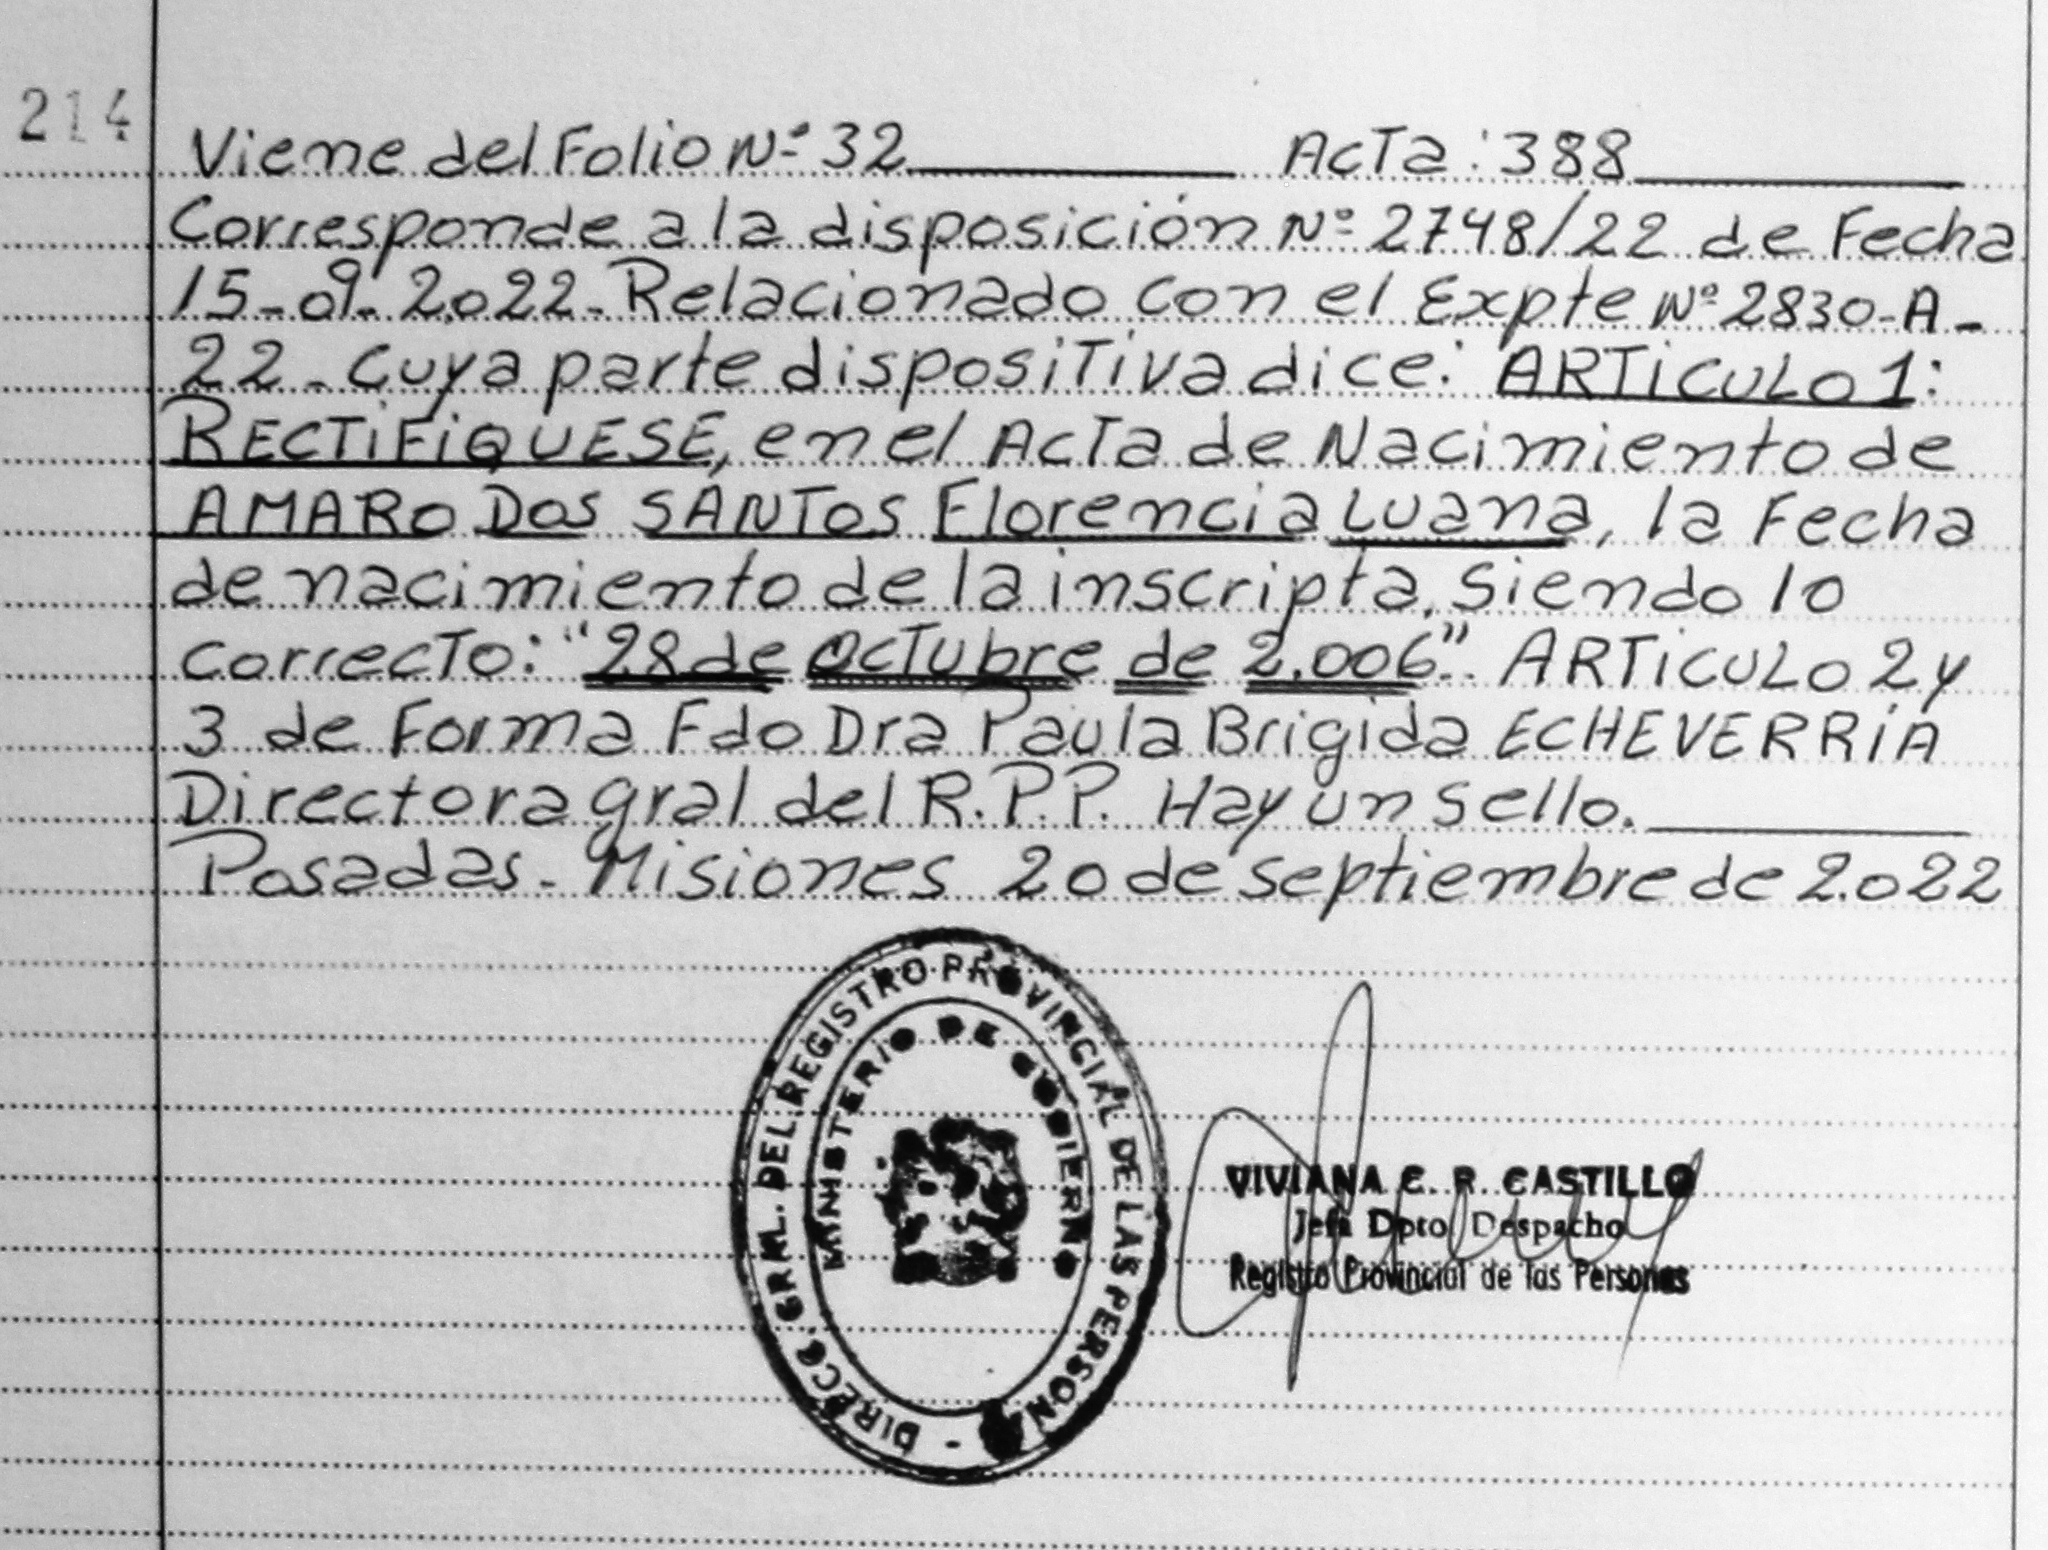 214
Viene del Folio Nº 32 Acta: 388
Corresponde a la disposición Nº 2748/22 de Fecha
15-09-2.022-Relacionado con el Expte Nº 2830-A-
22-Cuya parte dispositiva dice: ARTICULO 1:
RECTIFIQUESE, en el Acta de Nacimiento de
AMARO DOS SANTOS Florencia Luana, la Fecha
de nacimiento de la inscripta, Siendo lo
correcto: "28 de octubre de 2.006". ARTICULO 2 y
3 de Forma Fdo Dra Paula Brigida ECHEVERRIA
Directora gral del R.P.P. Hay un Sello.
Posadas-Misiones 20 de septiembre de 2.022
DIRECC. GRAL. DEL REGISTRO PROVINCIAL DE LAS PERSONAS -
MINISTERIO DE GOBIERNO
VIVIANA C. R. CASTILLO
Jefa Dpto Despacho
Registro Provincial de las Personas